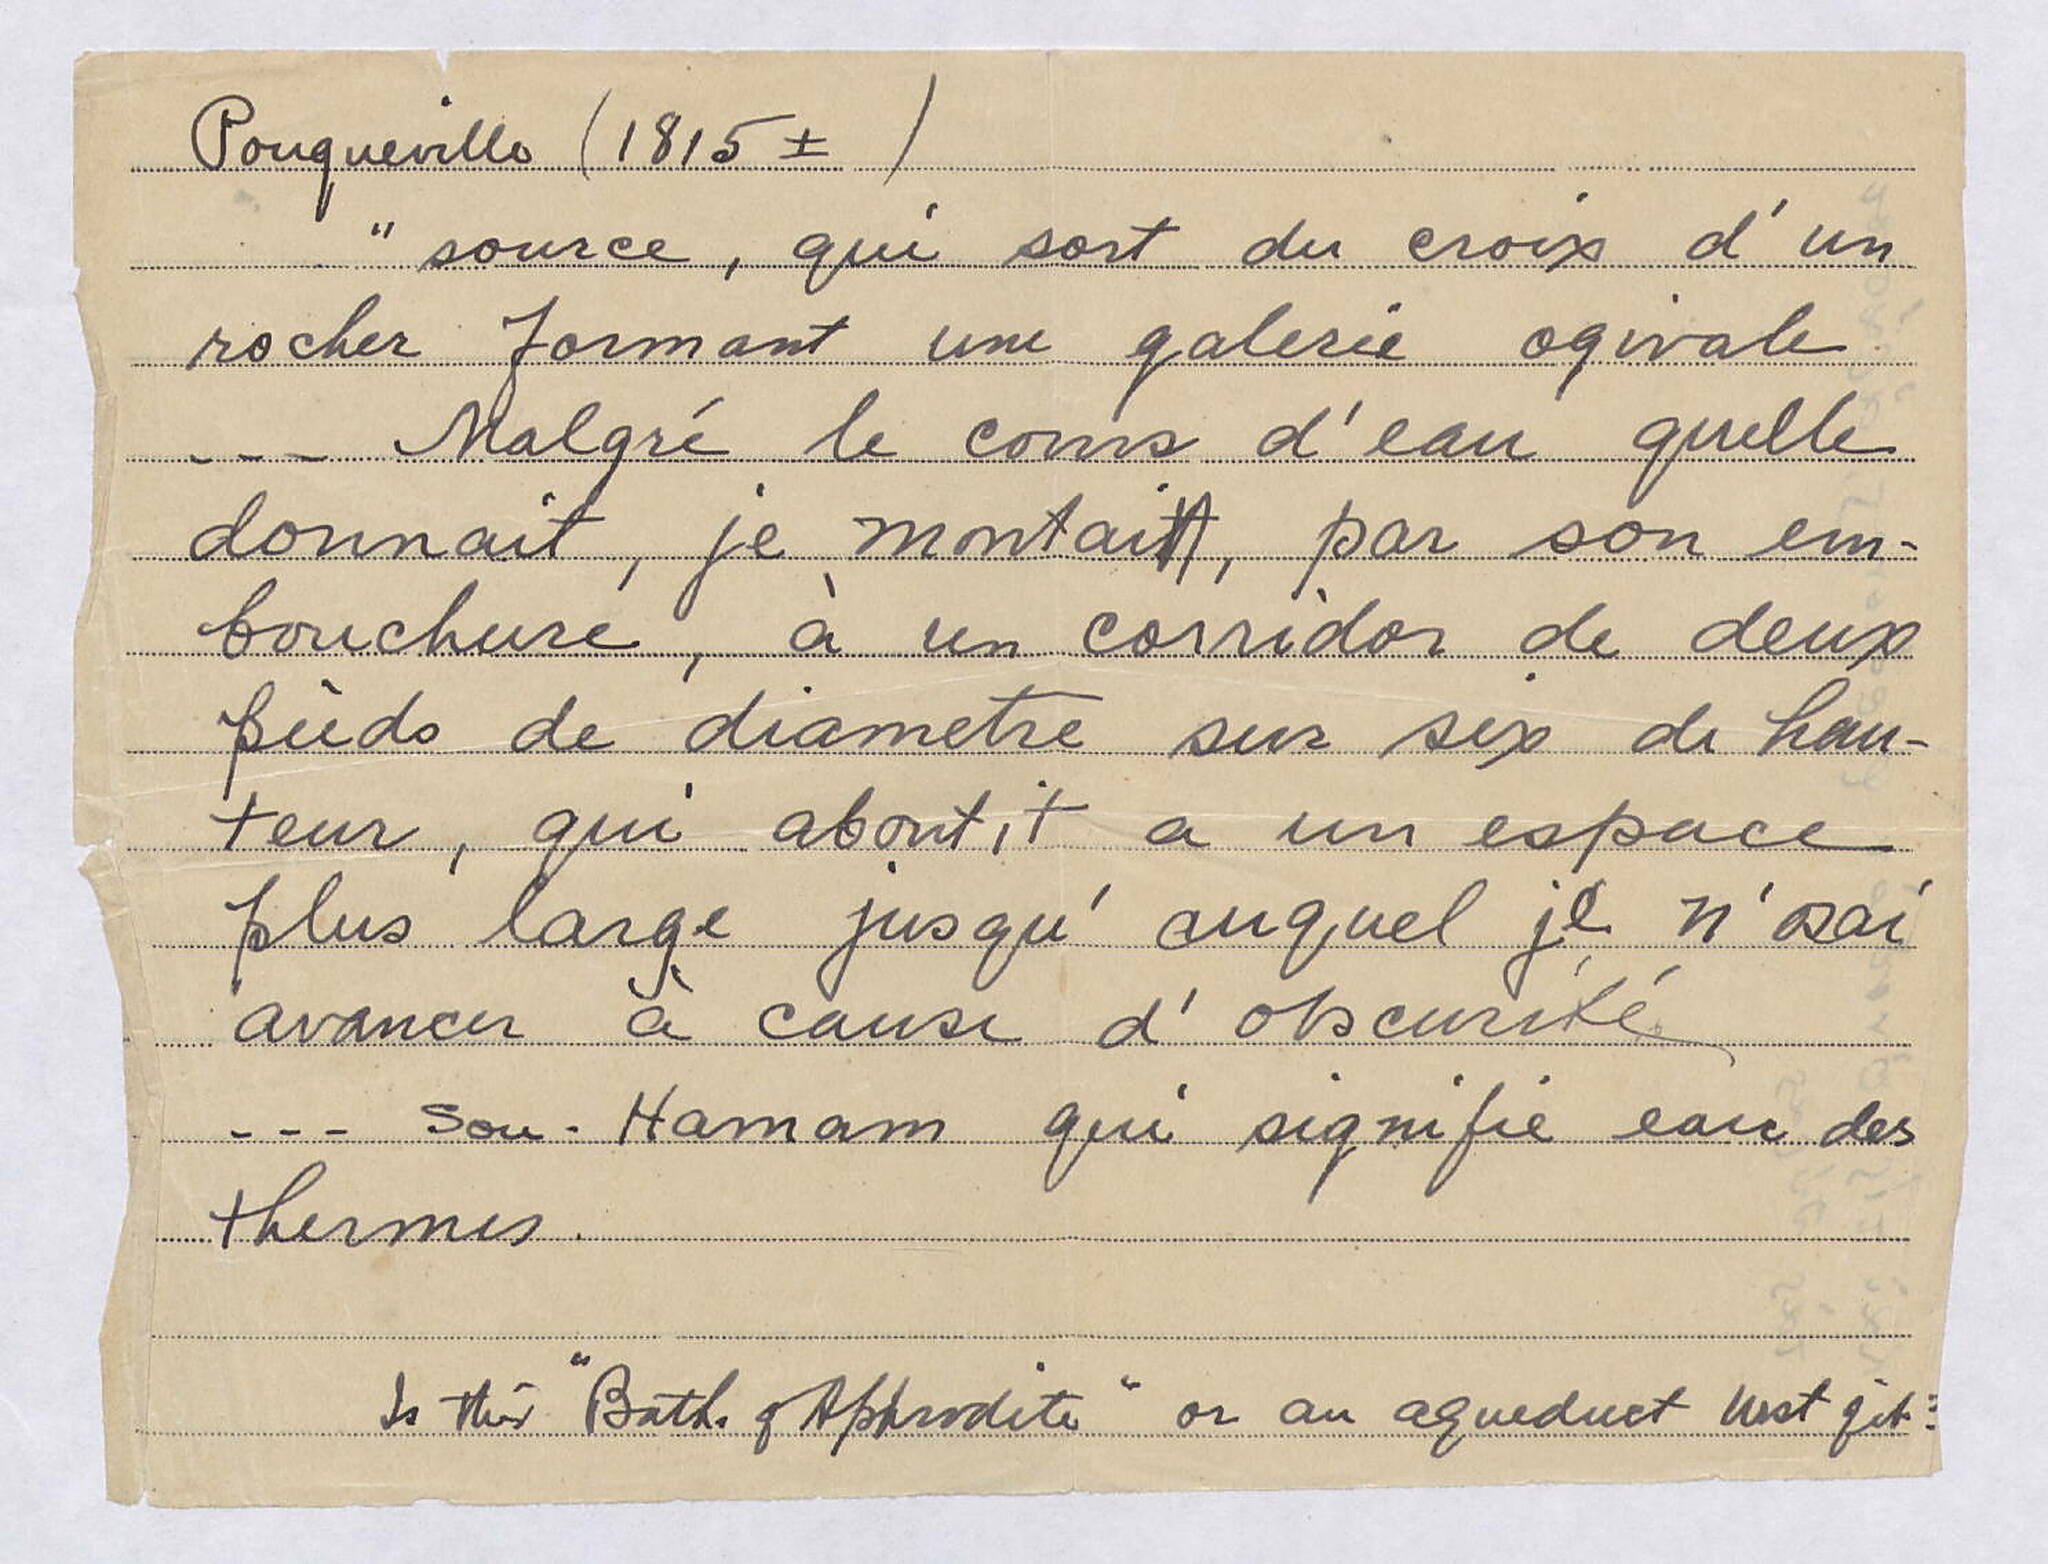 Pouqueville (1815 ± )
"source, qui sort du croix d'un
rocher formant une galerie ogivale
--- Malgré le cours d'eau quelle
donnait, je montai, par son em-
bouchure, à un corridor de deux
pieds de diametre sur six de hau-
teur, qui aboutit a un espace
plus large jusqu' auquel je n'osai
avancer à cause d' obscurité
--- Sou-Hamam qui signifie eau des
thermes.
Is this "Bath of Aphrodite" or an aqueduct West of it?